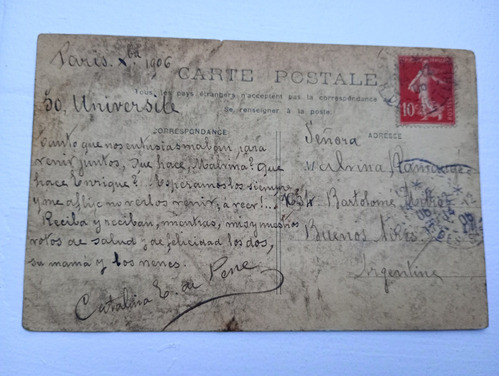 Paris. Xbre 1906
CARTE POSTALE
Tous les pays étrangers n'acceptent pas la correspondance
Se renseigner à la poste
50. Université
CORRESPONDANCE
ADRESSE
Tanto que nos entusiasmaban para
venir juntos, Que hace, Malvina? Que
hace Enrique?... Esperamoslos siempre
y me aflije no verlos venir, a ver!...
Reciba y reciban, mientras, mis y nuestros
votos de salud y de felicidad los dos,
su mama y los nenes.
Catalina E. de Pene
Señora
Malvina
Bartolomé Mitre
Buenos Aires
Argentine
10